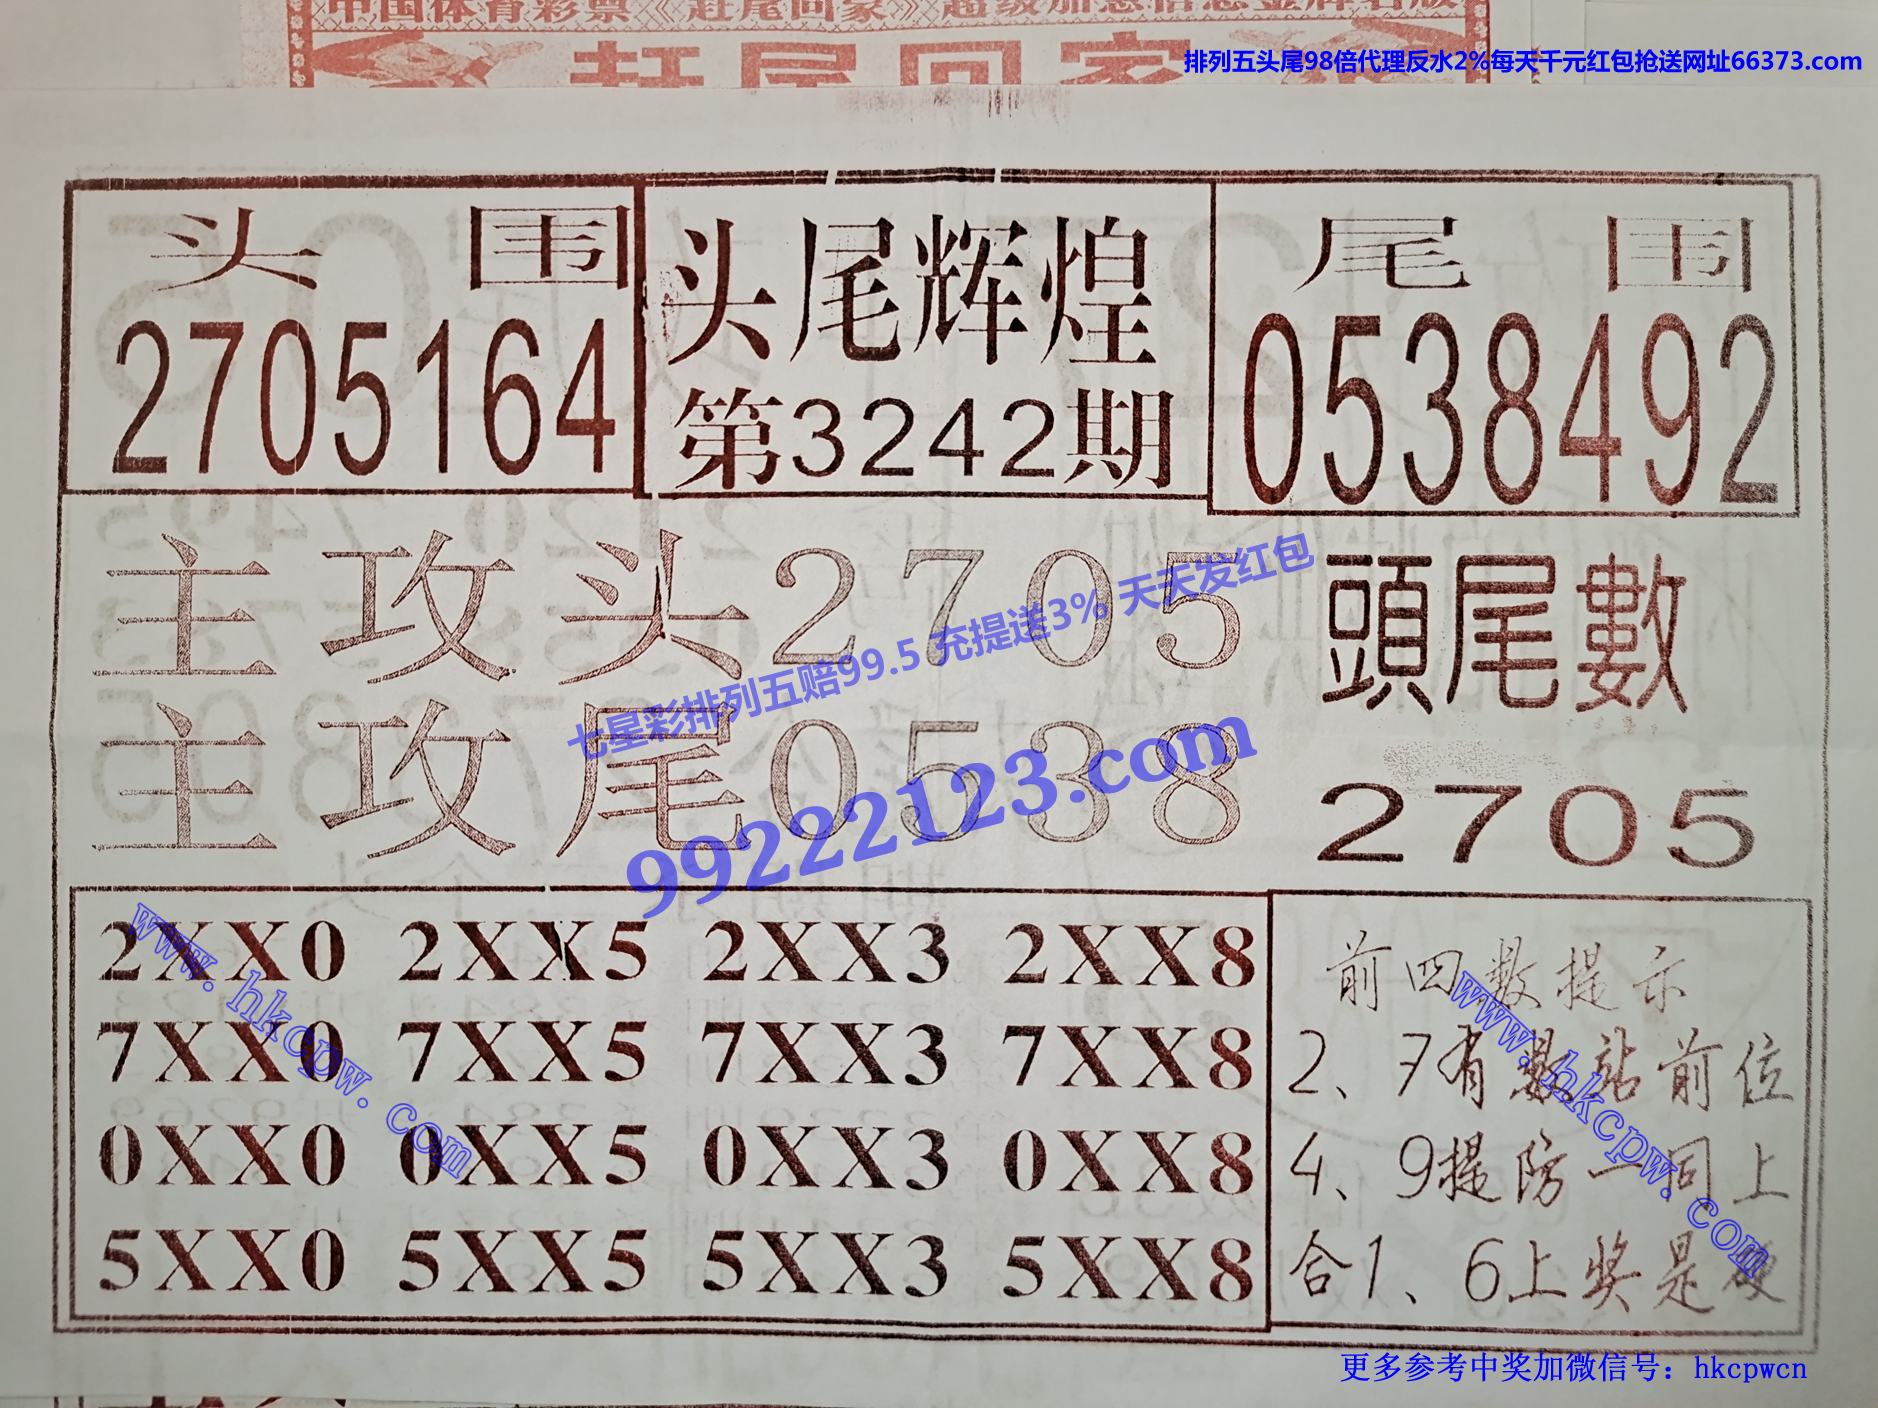 中国体育彩票《赶尾回家》超级加急信息金牌名版
赶尾回家
排列五头尾98倍代理反水2%每天千元红包抢送网址66373.com
头围
2705164
头尾辉煌
第3242期
尾围
0538492
主攻头2705
主攻尾0538
頭尾數
2705
七星彩排列五赔99.5 充提送3% 天天发红包
99222123.com
2XX0 2XX5 2XX3 2XX8
7XX0 7XX5 7XX3 7XX8
0XX0 0XX5 0XX3 0XX8
5XX0 5XX5 5XX3 5XX8
前四数提示
2、7有数站前位
4、9提防一同上
合1、6上奖是硬
www.hkcpw.com
www.hkcpw.com
更多参考中奖加微信号：hkcpwcn